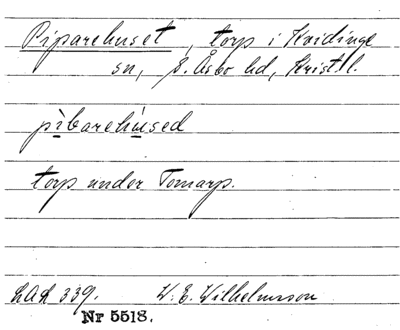 Piparehuset, torp i Kvidinge
sn, S. Åsbo hd, Krist.l.
pìbarehùsed
torp under Tomarp.
LAL 339. W. E. Wilhelmsson
Nr 5518.